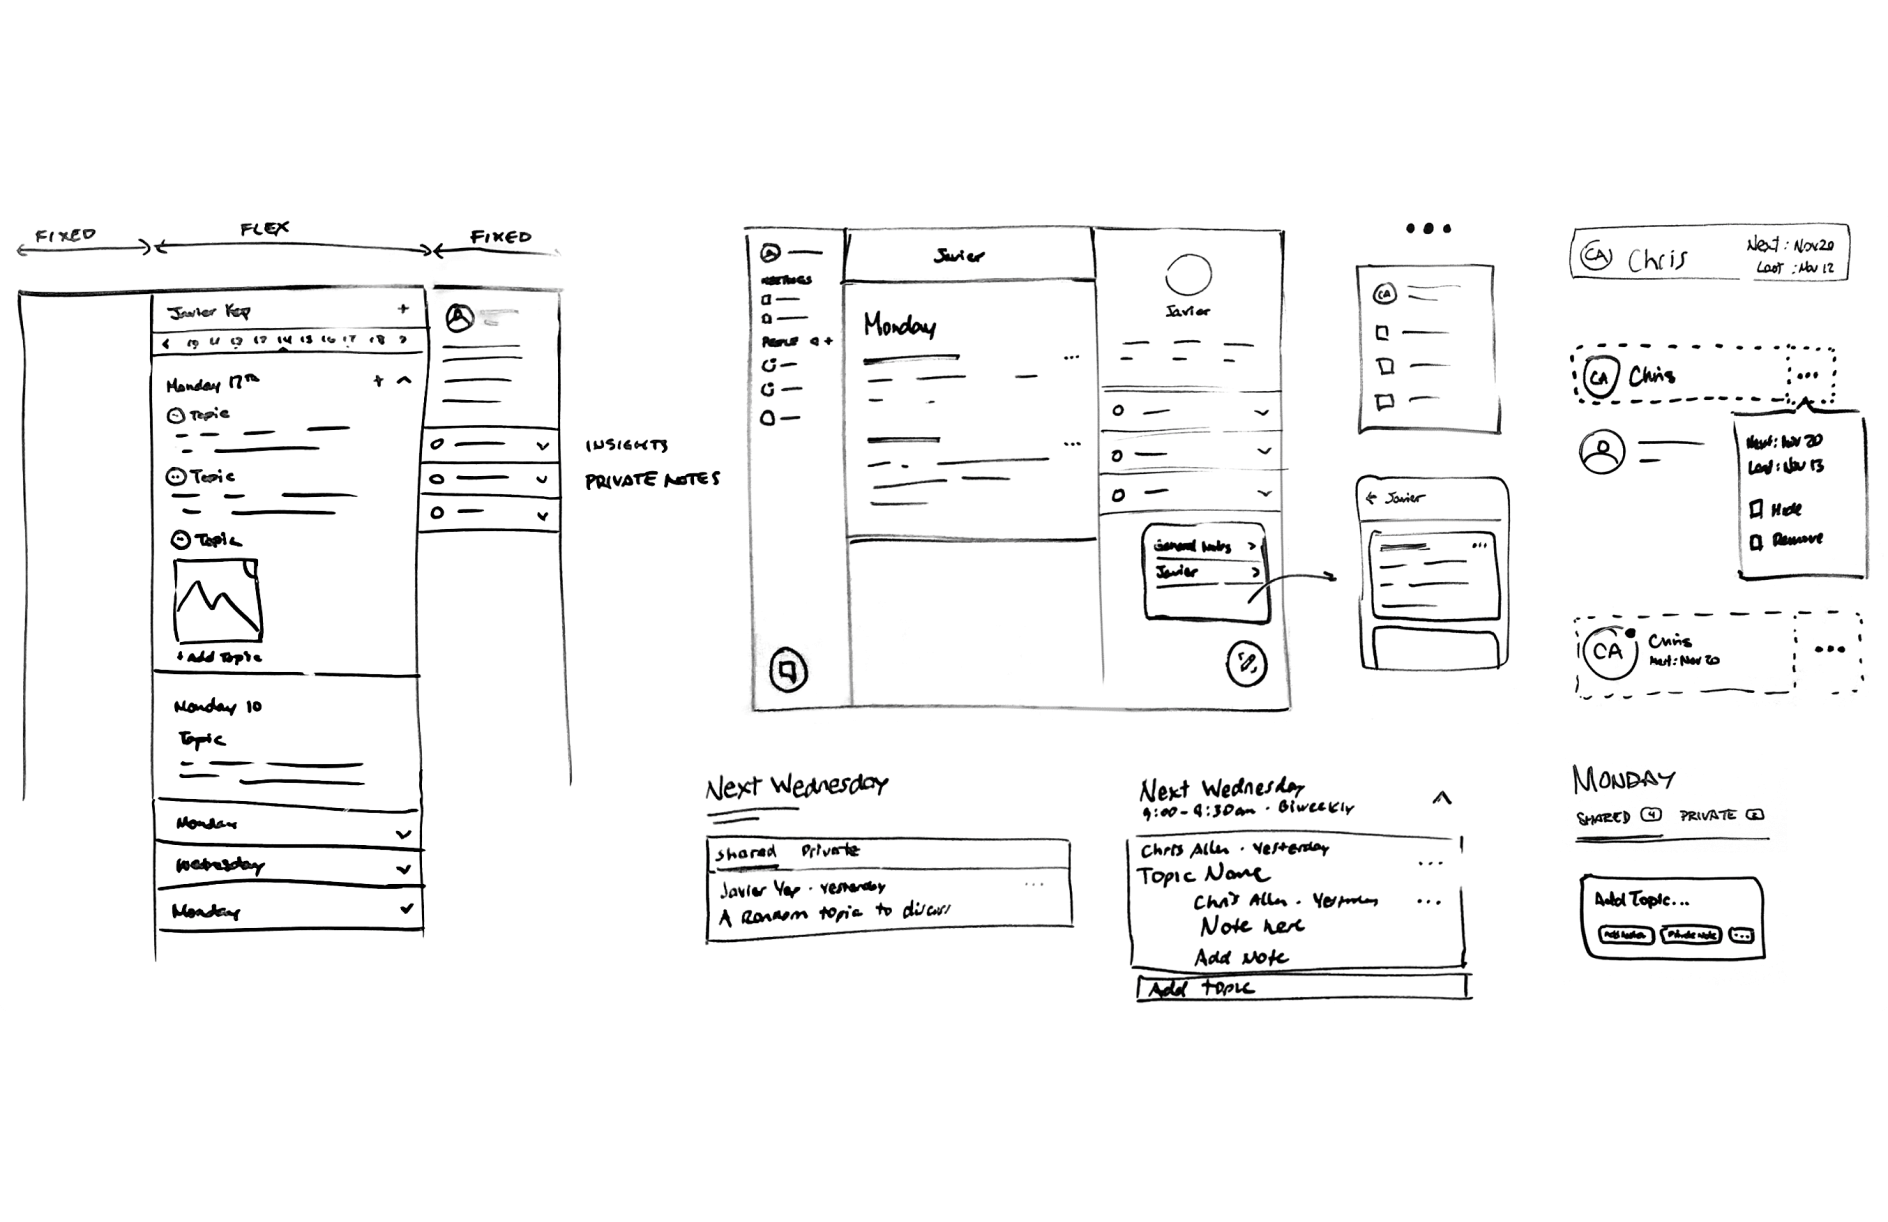 FIXED
FLEX
FIXED
Javier Yep +
< 10 11 12 13 14 15 16 17 18 >
Monday 17th +
Topic
Topic
Topic
+ Add Topic
Monday 10
Topic
Monday
Wednesday
Monday
INSIGHTS
PRIVATE NOTES
MEETINGS
PEOPLE +
Javier
Monday
Javier
General Notes >
Javier >
CA
← Javier
CA Chris
Next: Nov 20
Last: Nov 12
CA Chris ...
Next: Nov 20
Last: Nov 13
Hide
Remove
CA Chris
Next: Nov 20
...
Next Wednesday
Shared Private
Javier Yep · Yesterday ...
A Random topic to discuss
Next Wednesday
9:00-9:30am · Biweekly
Chris Allen · Yesterday
Topic Name ...
Chris Allen · Yesterday ...
Note here
Add Note
Add Topic
MONDAY
SHARED 4 PRIVATE 2
Add Topic...
Private Note ...